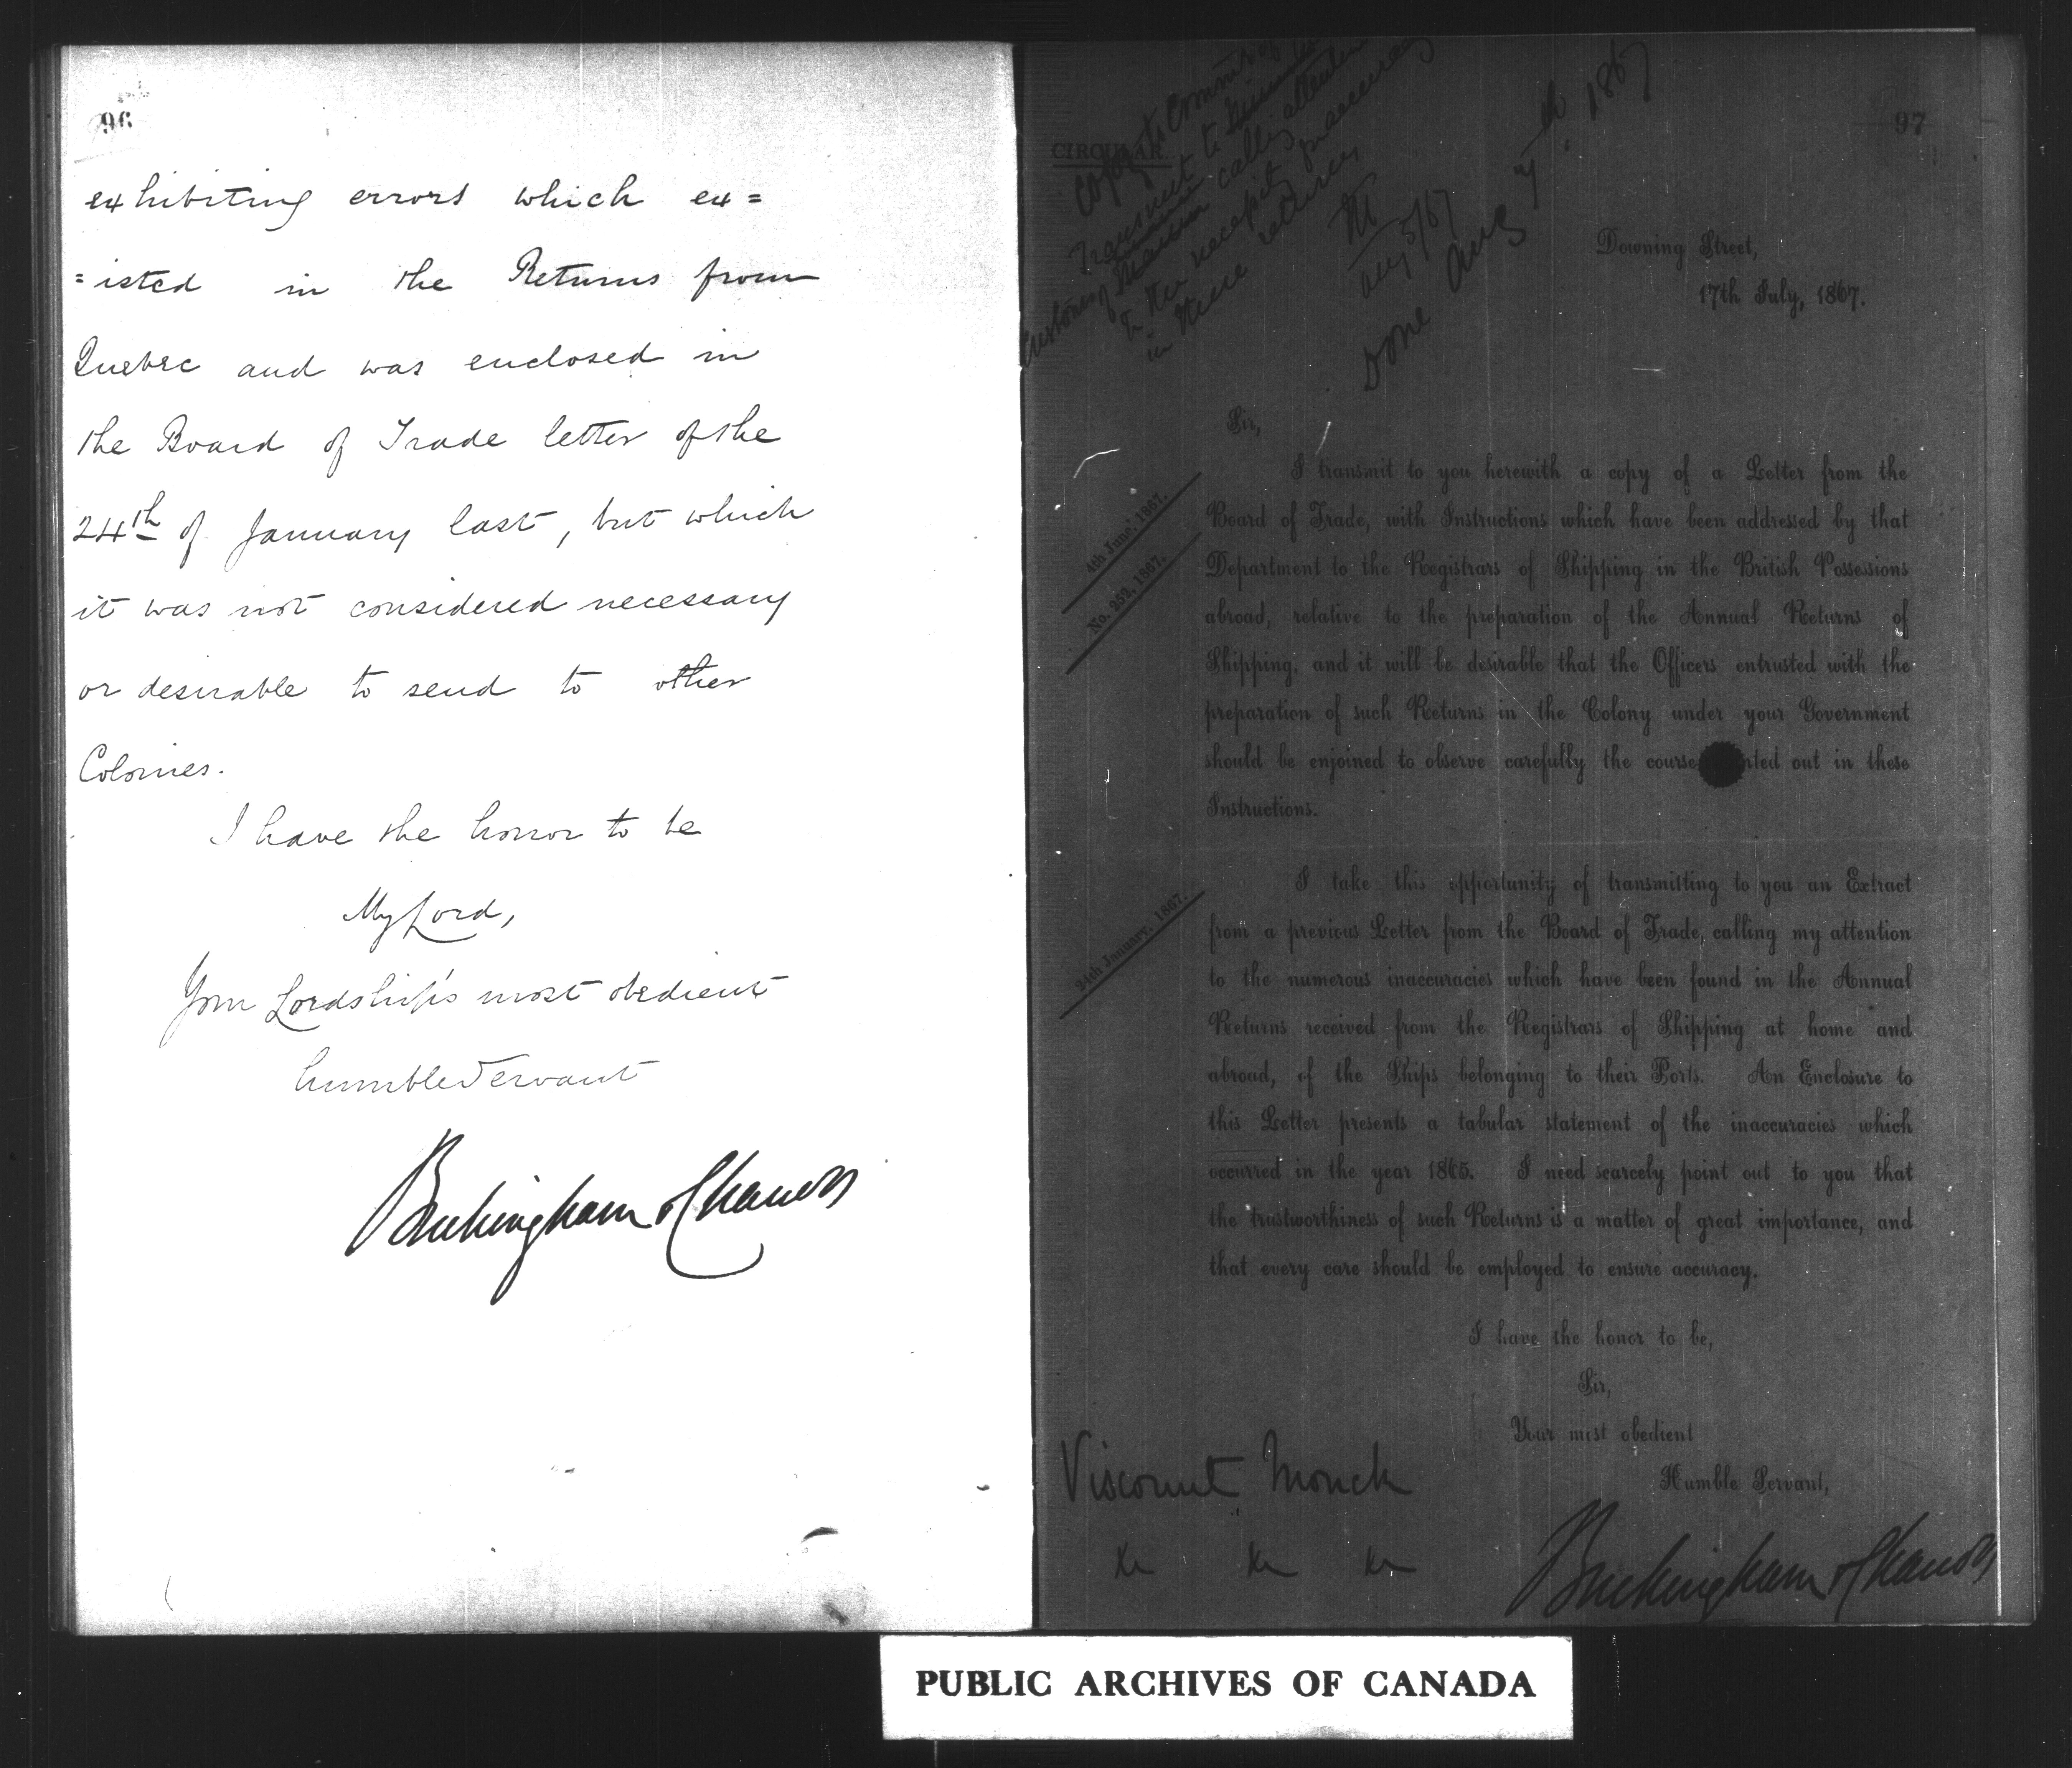 96
exhibiting errors which ex=
=isted in the Returns from
Quebec and was enclosed in
the Board of Trade letter of the
24th of January last, but which
it was not considered necessary
or desirable to send to other
Colonies.
I have the honor to be
My Lord,
Your Lordship's most obedient
humble Servant
Buckingham & Chandos
97
CIRCULAR.
Copy to Comm
Transmit to
Customs calling attention
to the receipt inaccuracy
in these returns
Aug 5/67
Done Aug 7th 1867
Downing Street,
17th July, 1867.
Sir,
4th June, 1867.
No. 252, 1867.
I transmit to you herewith a copy of a Letter from the
Board of Trade, with Instructions which have been addressed by that
Department to the Registrars of Shipping in the British Possessions
abroad, relative to the preparation of the Annual Returns of
Shipping, and it will be desirable that the Officers entrusted with the
preparation of such Returns in the Colony under your Government
should be enjoined to observe carefully the course nted out in these
Instructions.
24th January, 1867.
I take this opportunity of transmitting to you an Extract
from a previous Letter from the Board of Trade, calling my attention
to the numerous inaccuracies which have been found in the Annual
Returns received from the Registrars of Shipping at home and
abroad, of the Ships belonging to their Ports. An Enclosure to
this Letter presents a tabular statement of the inaccuracies which
occurred in the year 1865. I need scarcely point out to you that
the trustworthiness of such Returns is a matter of great importance, and
that every care should be employed to ensure accuracy.
I have the honor to be,
Sir,
Your most obedient
Humble Servant,
Viscount Monck
&c &c &c
Buckingham & Chandos
PUBLIC ARCHIVES OF CANADA